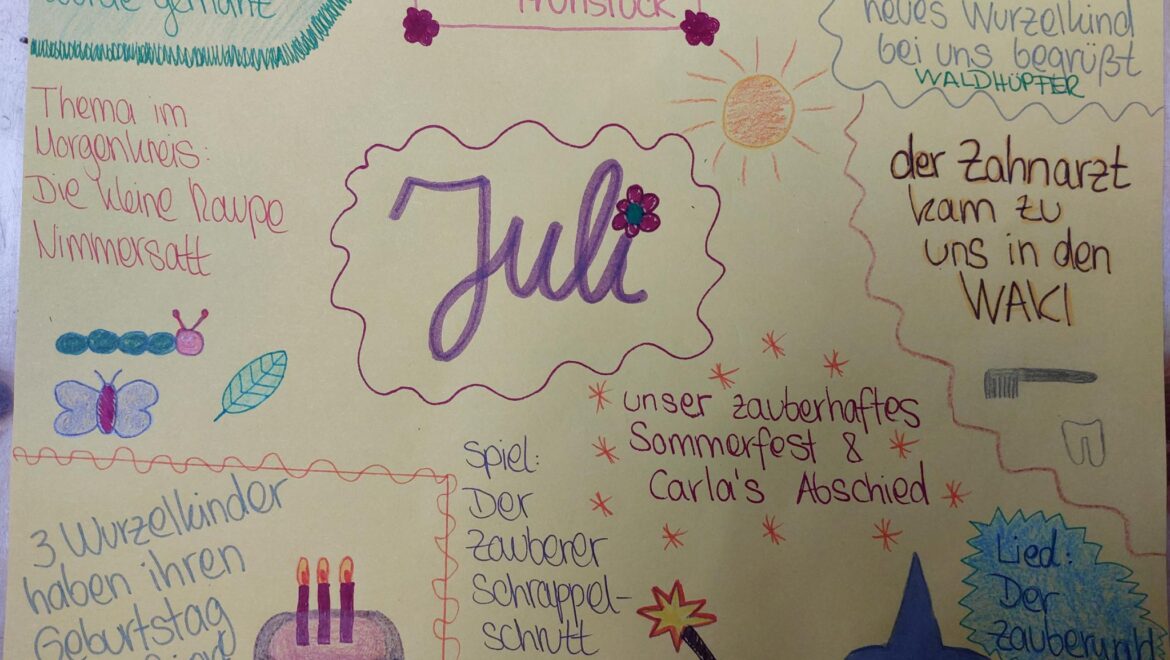 wurde gemalt
Frühstück
neues Wurzelkind
bei uns begrüßt
WALDHÜPFER
Thema im
Morgenkreis:
Die kleine Raupe
Nimmersatt
Juli
der Zahnarzt
kam zu
uns in den
WAKI
unser zauberhaftes
Sommerfest &
Carla's Abschied
Spiel:
Der
Zauberer
Schrappel-
schrutt
3 Wurzelkinder
haben ihren
Geburtstag
Lied:
Der